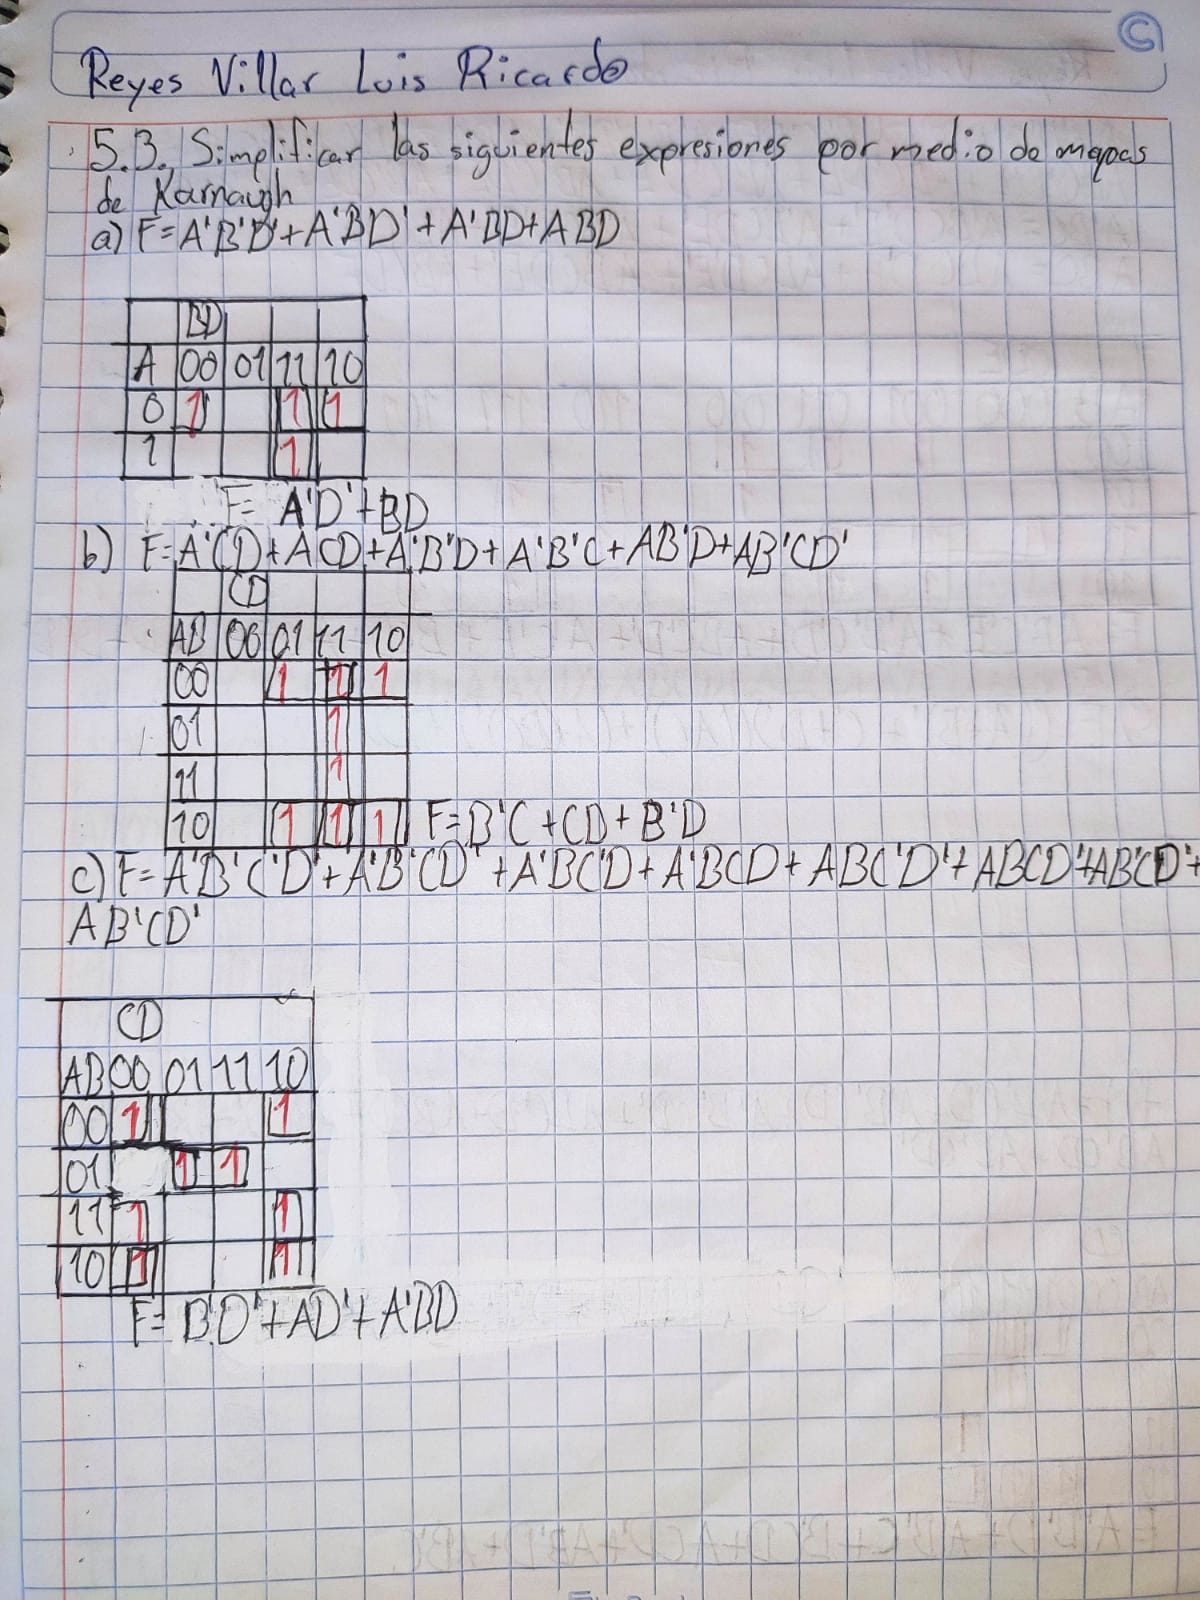 Reyes Villar Luis Ricardo
5.3. Simplificar las siguientes expresiones por medio de mapas
de Karnaugh
a) F=A'B'D'+A'BD'+A'BD+ABD
BD
A 00 01 11 10
0 1 1 1
1 1
F= A'D'+BD
b) F=A'CD+ACD+A'B'D+A'B'C+AB'D+AB'CD'
CD
AB 00 01 11 10
00 1 1 1
01 1
11 1
10 1 1 1 F=B'C+CD+B'D
c) F=A'B'C'D'+A'B'CD'+A'BC'D+A'BCD+ABC'D'+ABCD'+AB'C'D'+
AB'CD'
CD
AB 00 01 11 10
00 1 1
01 1 1
11 1 1
10 1 1
F= B'D'+AD'+A'BD